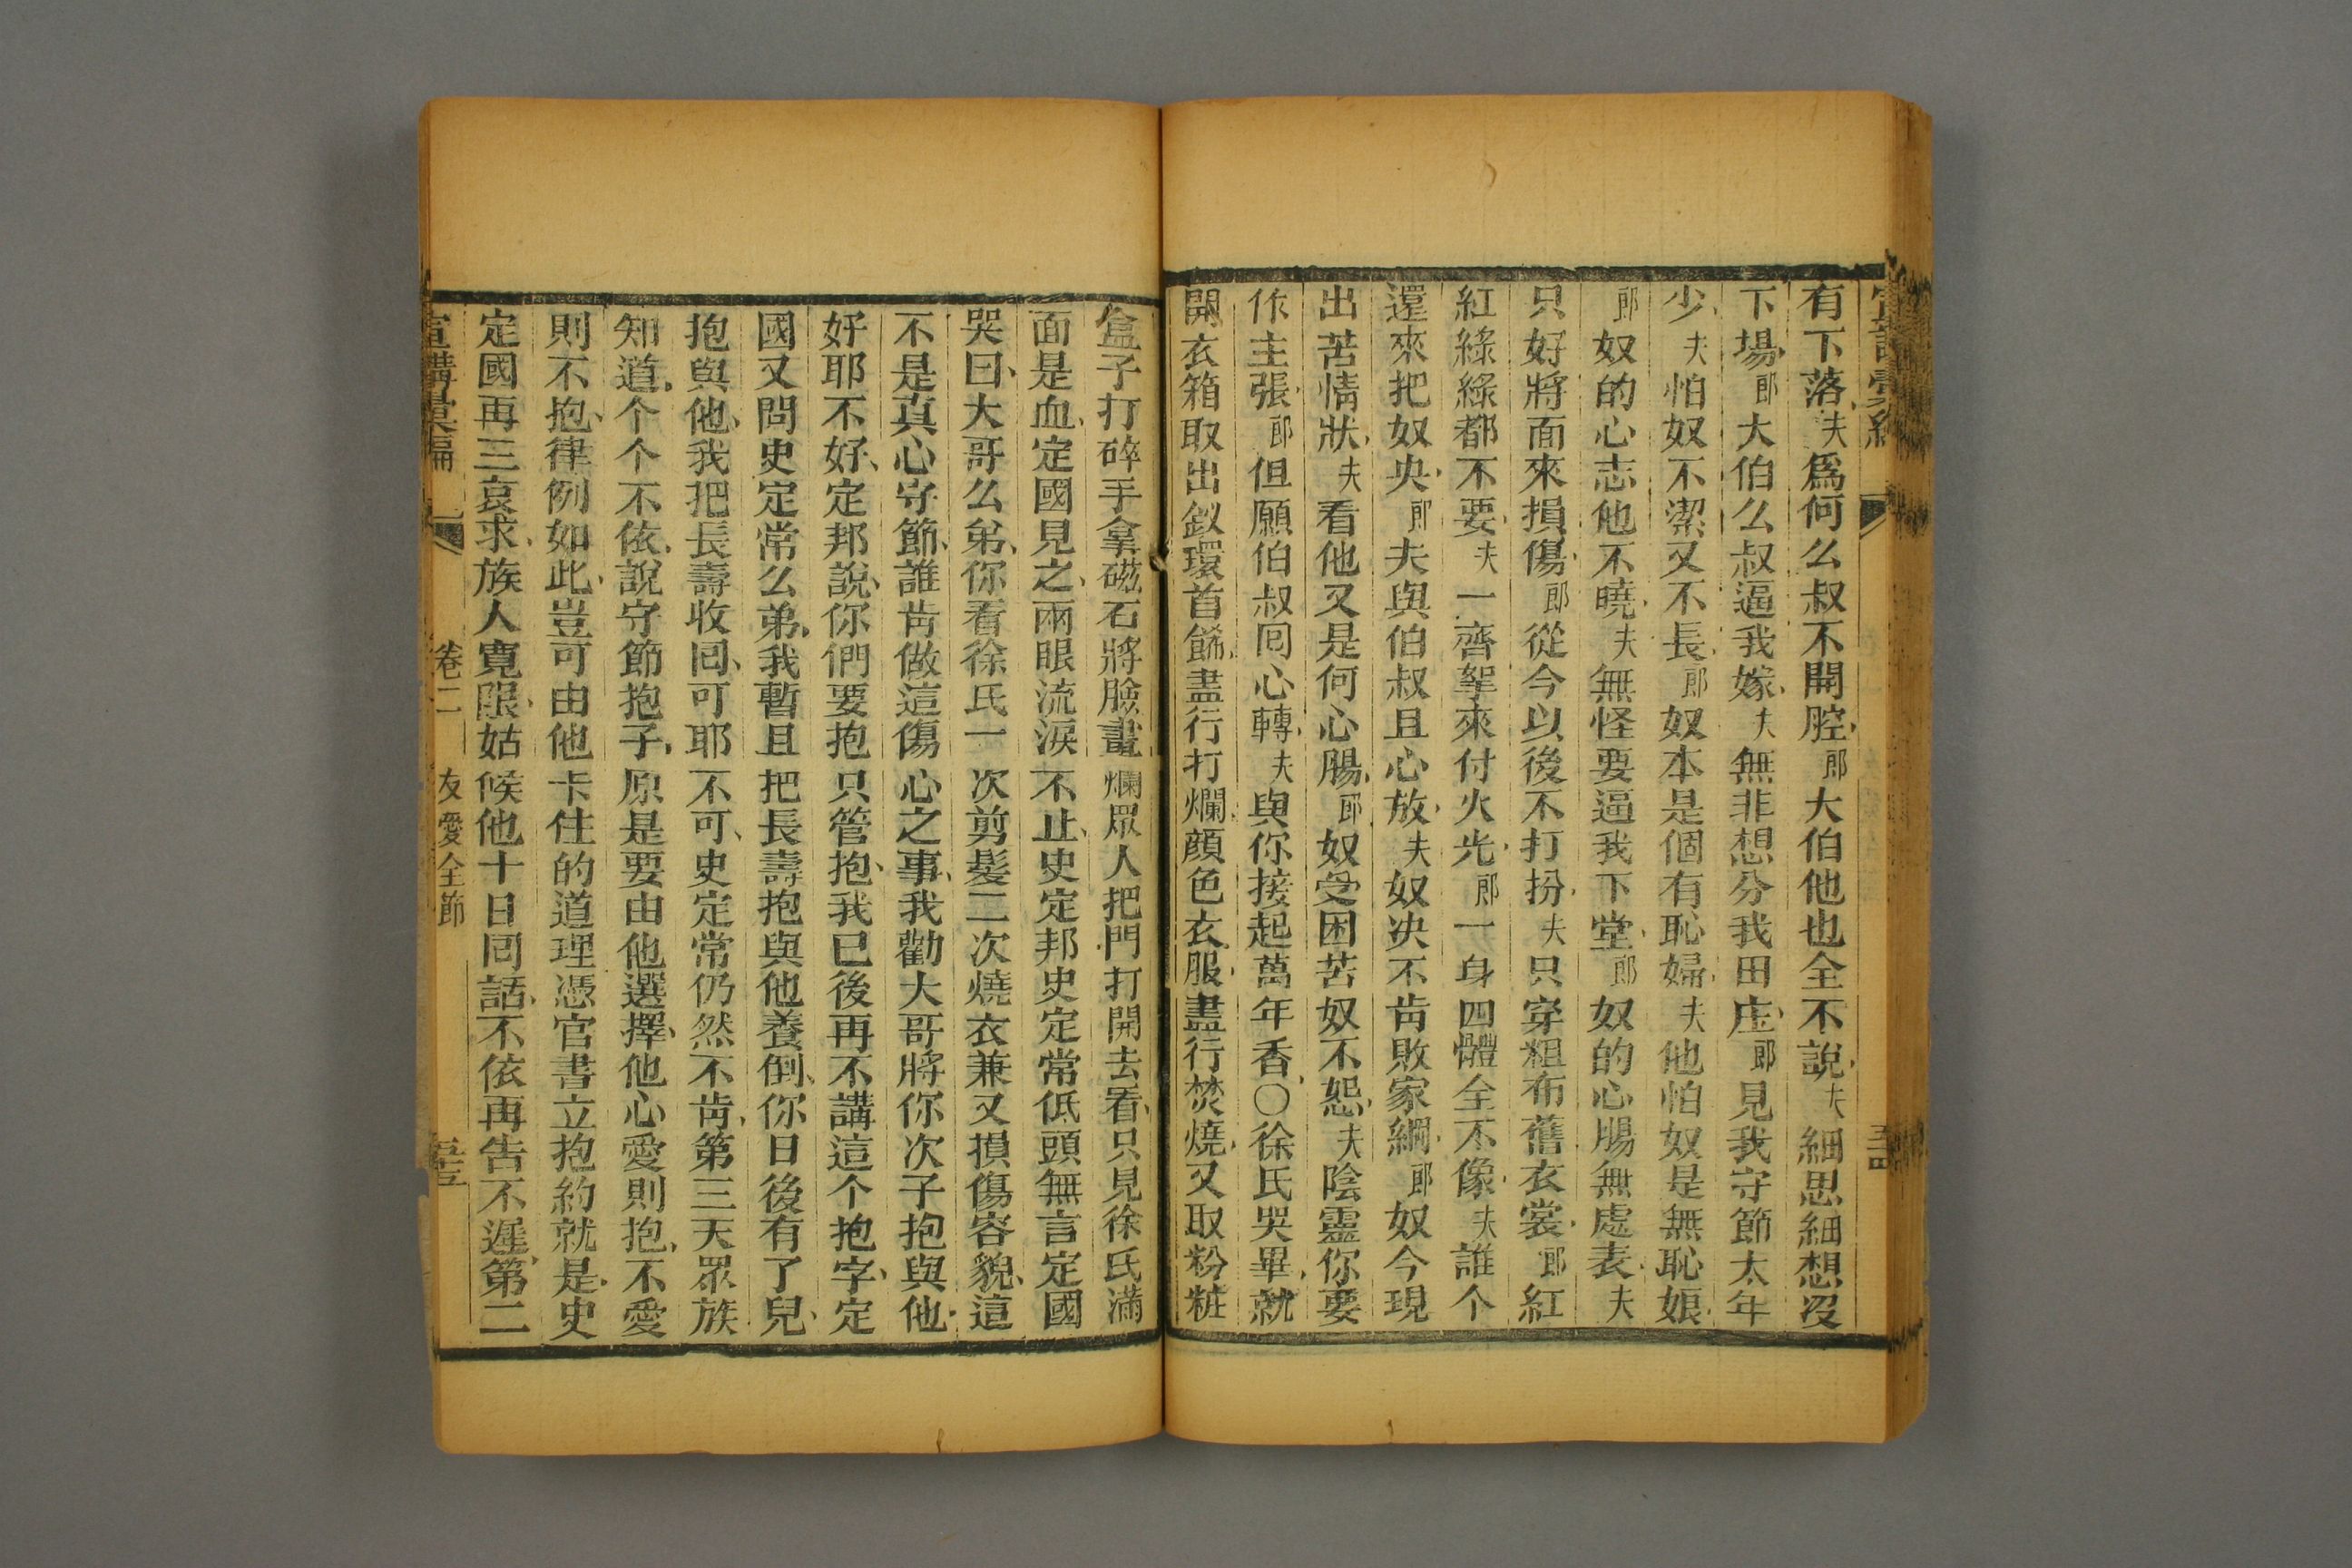 有下落夫爲何么叔不開腔郎大伯他也全不說夫細思細想沒
下場郎大伯么叔逼我嫁夫無非想分我田庄郎見我守節太年
少夫怕奴不潔又不長郎奴本是個有恥婦夫他怕奴是無恥娘
郎奴的心志他不曉夫無怪要逼我下堂郎奴的心腸無處表夫
只好將面來損傷郎從今以後不打扮夫只穿粗布舊衣裳郎紅
紅綠綠都不要夫一齊拏來付火光郎一身四體全不像夫誰个
還來把奴央郎夫與伯叔且心放夫奴决不肯敗家綱郎奴今現
出苦情狀夫看他又是何心腸郎奴受困苦奴不怨夫陰靈你要
作主張郎但願伯叔囘心轉夫與你接起萬年香○徐氏哭畢就
開衣箱取出釵環首餙盡行打爛顔色衣服盡行焚燒又取粉粧
盒子打碎手拿磁石將臉畫爛眾人把門打開去看只見徐氏滿
面是血定國見之兩眼流淚不止史定邦史定常低頭無言定國
哭曰大哥么弟你看徐氏一次剪髮二次燒衣兼又損傷容貌這
不是真心守節誰肯做這傷心之事我勸大哥將你次子抱與他
好耶不好定邦說你們要抱只管抱我已後再不講這个抱字定
國又問史定常么弟我暫且把長壽抱與他養倒你日後有了兒
抱與他我把長壽收囘可耶不可史定常仍然不肯第三天眾族
知道个个不依說守節抱子原是要由他選擇他心愛則抱不愛
則不抱律例如此豈可由他卡住的道理憑官書立抱約就是史
定國再三哀求族人寬限姑候他十日囘話不依再告不遲第二
宣講彙編 卷二 友愛全節 五十五